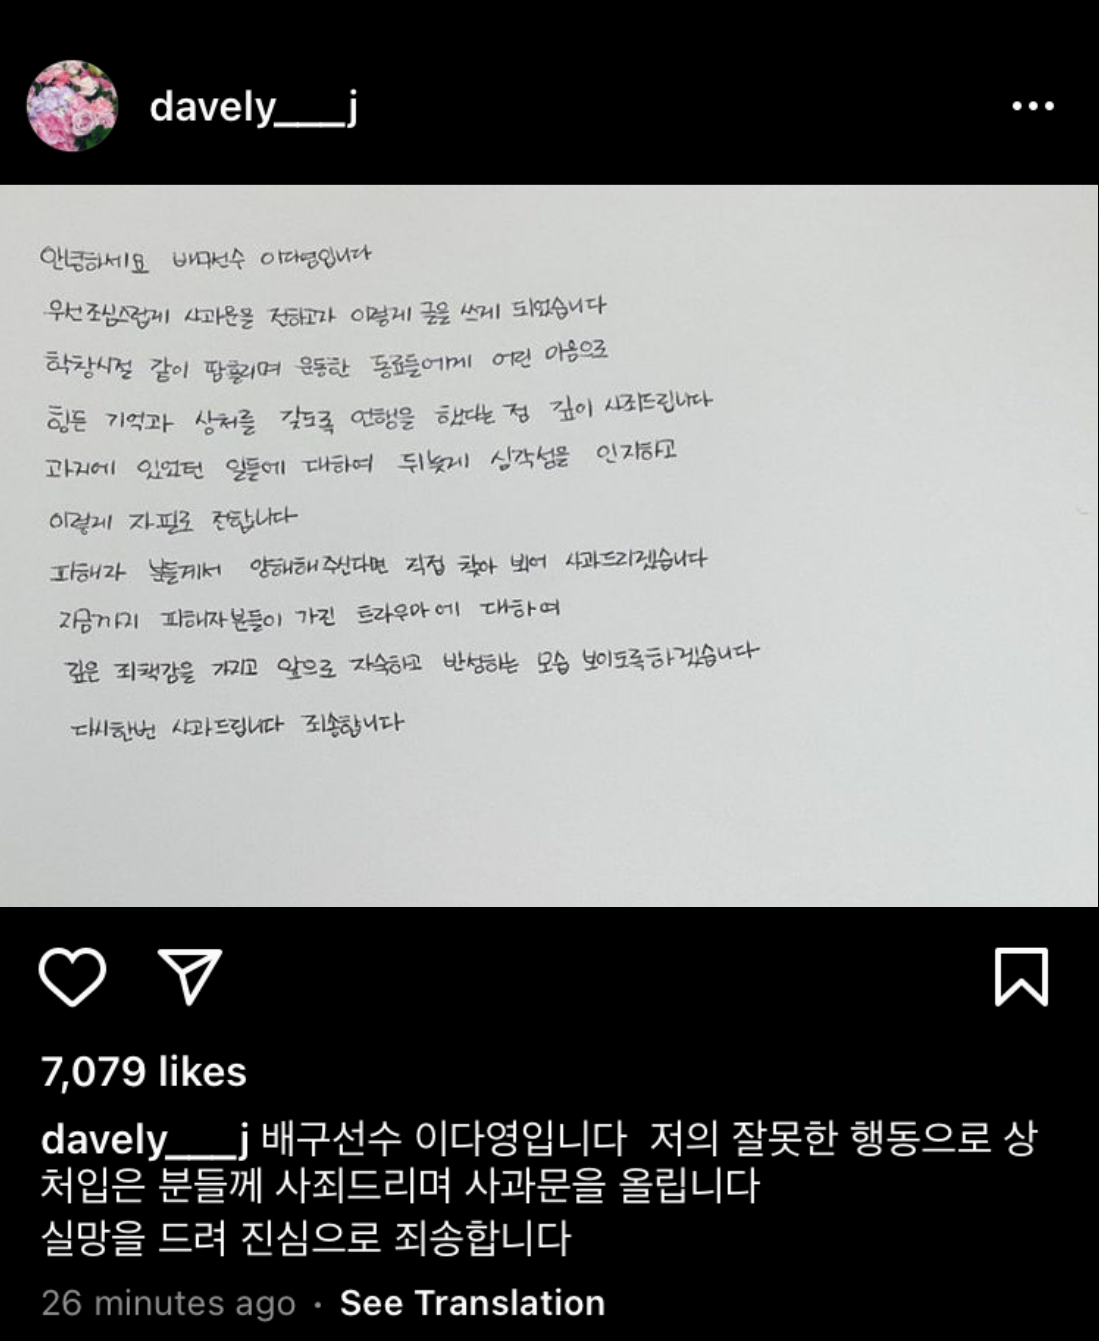 davely___j
안녕하세요 배구선수 이다영입니다
우선 조심스럽게 사과문을 전하고자 이렇게 글을 쓰게 되었습니다
학창시절 같이 땀흘리며 운동한 동료들에게 어린 마음으로
힘든 기억과 상처를 갖도록 언행을 했다는 점 깊이 사죄드립니다
과거에 있었던 일들에 대하여 뒤늦게 심각성을 인지하고
이렇게 자필로 전합니다
피해자 분들께서 양해해주신다면 직접 찾아 뵈어 사과드리겠습니다
지금까지 피해자분들이 가진 트라우마에 대하여
깊은 죄책감을 가지고 앞으로 자숙하고 반성하는 모습 보이도록하겠습니다
다시한번 사과드립니다 죄송합니다
7,079 likes
davely___j 배구선수 이다영입니다 저의 잘못한 행동으로 상
처입은 분들께 사죄드리며 사과문을 올립니다
실망을 드려 진심으로 죄송합니다
26 minutes ago · See Translation